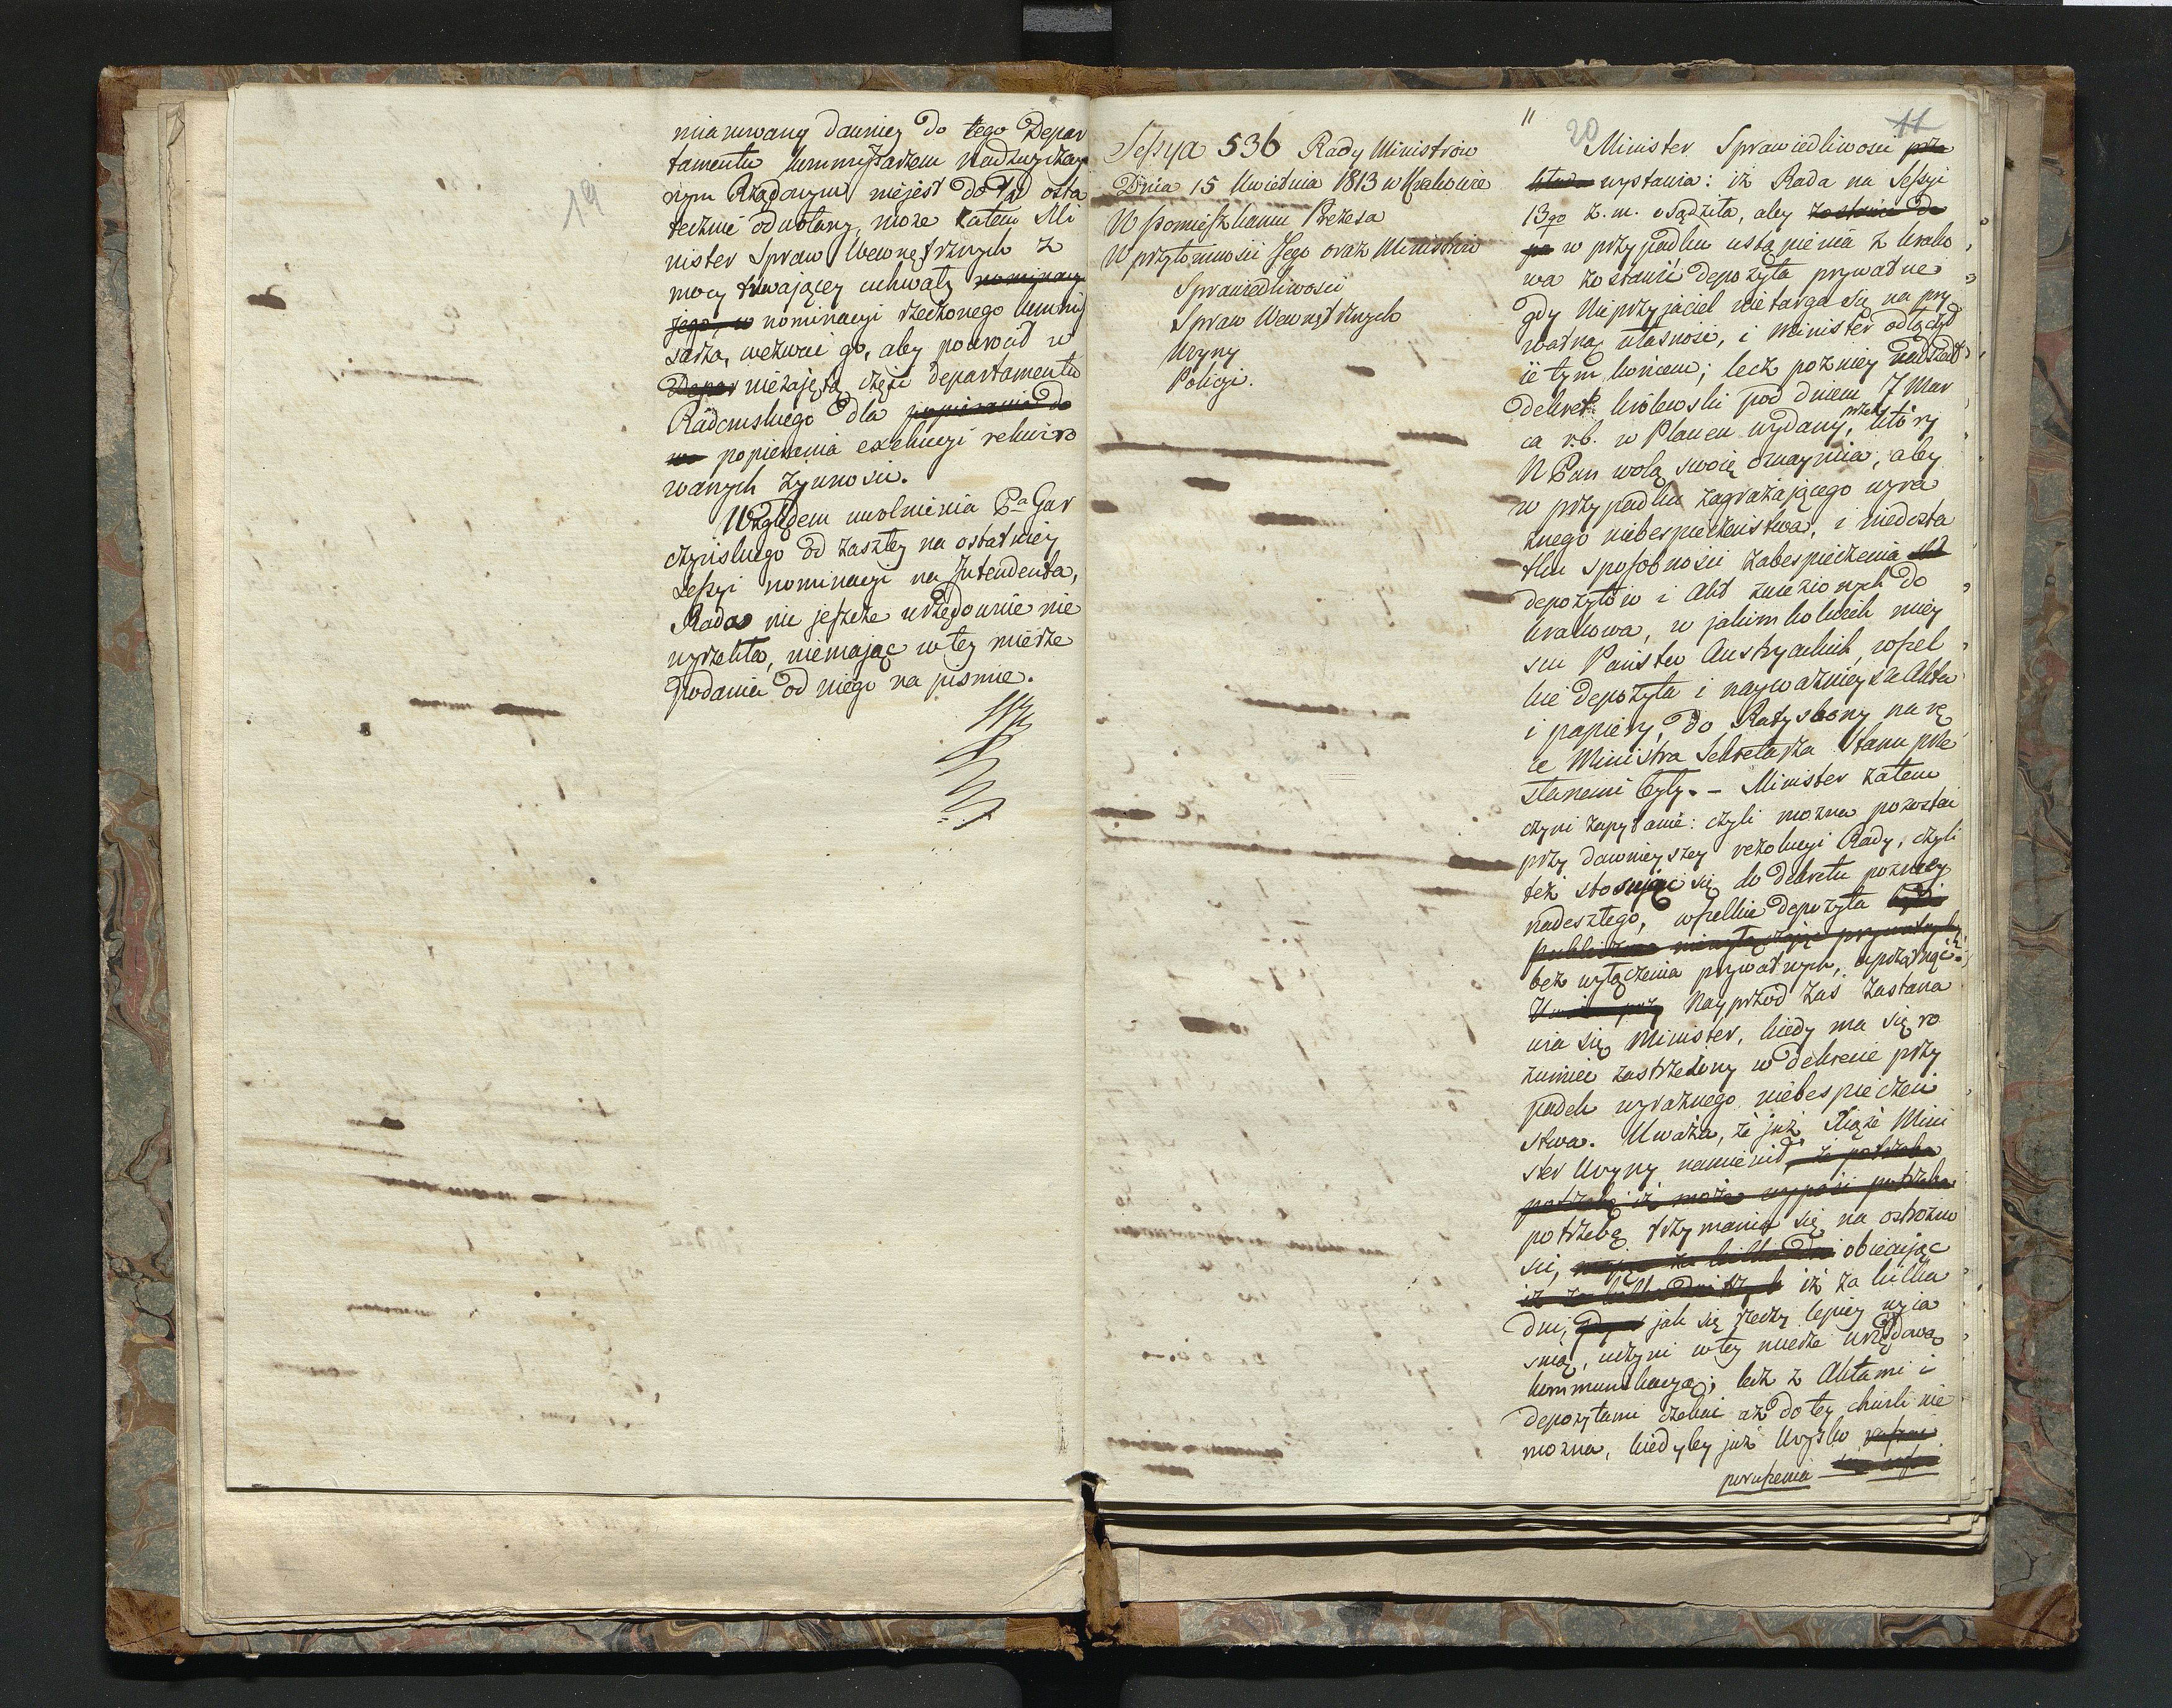 19
mianowany dawniey do tego Depar
tamentu Kommissarzem Nadzwyczay
nym Rządowym niejest dotąd osta
tecznie odwołany, może zatem Mi
nister Spraw Wewnętrznych z
mocy trwającey uchwały
nominacyi rzeczonego Kommis
sarza, wezwać go, aby powrócił w
niezajętą część departamentu
Radomskiego dla
popierania exekucyi rekwiro
wanych żywności.
Względem uwolnienia Pa Gar
czyńskiego od zaszłey na ostatniey
Sessyi nominacyi na Intendenta,
Rada nic jeszcze urzędownie nie
wyrzekła, niemając w tey mierze
podania od niego na piśmie.
Sessya 536 Rady Ministrów
Dnia 15 Kwietnia 1813 w Krakowie
W Pomieszkaniu Prezesa
W przytomności Jego oraz Ministrów
Sprawiedliwości
Spraw Wewnętrznych
Woyny
Policyi.
11
20
Minister Sprawiedliwości
wystawia: iż Rada na Sessyi
13go z. m. osądziła, aby zostawić do
w przypadku ustąpienia z Krako
wa zostawić depozyta prywatne
gdy Nieprzyjaciel nie targa się na pry
watną własność, i Minister odłączył
je tym końcem; lecz pozniey nadszedł
dekret królewski pod dniem 7 Mar
ca r.b. w Plauen wydany, przez który
N Pan wolą swoię oznaymia, aby
w przypadku zagrażającego wyra
znego niebespieczeństwa, i niedosta
tku sposobności zabespieczenia
depozytów i Akt zwiezionych do
Krakowa, w jakimkolwiek miey
scu Państw Austryackich, wszel
kie depozyta i nayważnieysze Akta
i papiery, do Ratysbony na rę
ce Ministra Sekretarza Stanu prze
słanemi były. – Minister zatem
czyni zapytanie: czyli można pozostać
przy dawnieyszey rezolucyi Rady, czyli
też stosując się do dekretu pozniey
nadeszłego, wszelkie depozyta
publiczne niewyłączając prywatnych
bez wyłączenia prywatnych, uprzątnąć?
Nayprzod zaś zastana
wia się Minister, kiedy ma się ro
zumieć zastrzeżony w dekrecie przy
padek wyraznego niebespieczeń
stwa. Uważa, że już Xiąże Mini
ster Woyny namienił, że potrzeba
potrzebę iż może wypaść potrzeba
potrzebę trzymania się na ostrożno
ści, obiecując
iż za kilka
dni, jak się rzeczy lepiey wyia
snią, uczyni w tey mierze urzędową
kommunikacyą; lecz z Aktami i
depozytami czekać aż do tey chwili nie
można, kiedyby już Woysko
poruszenia